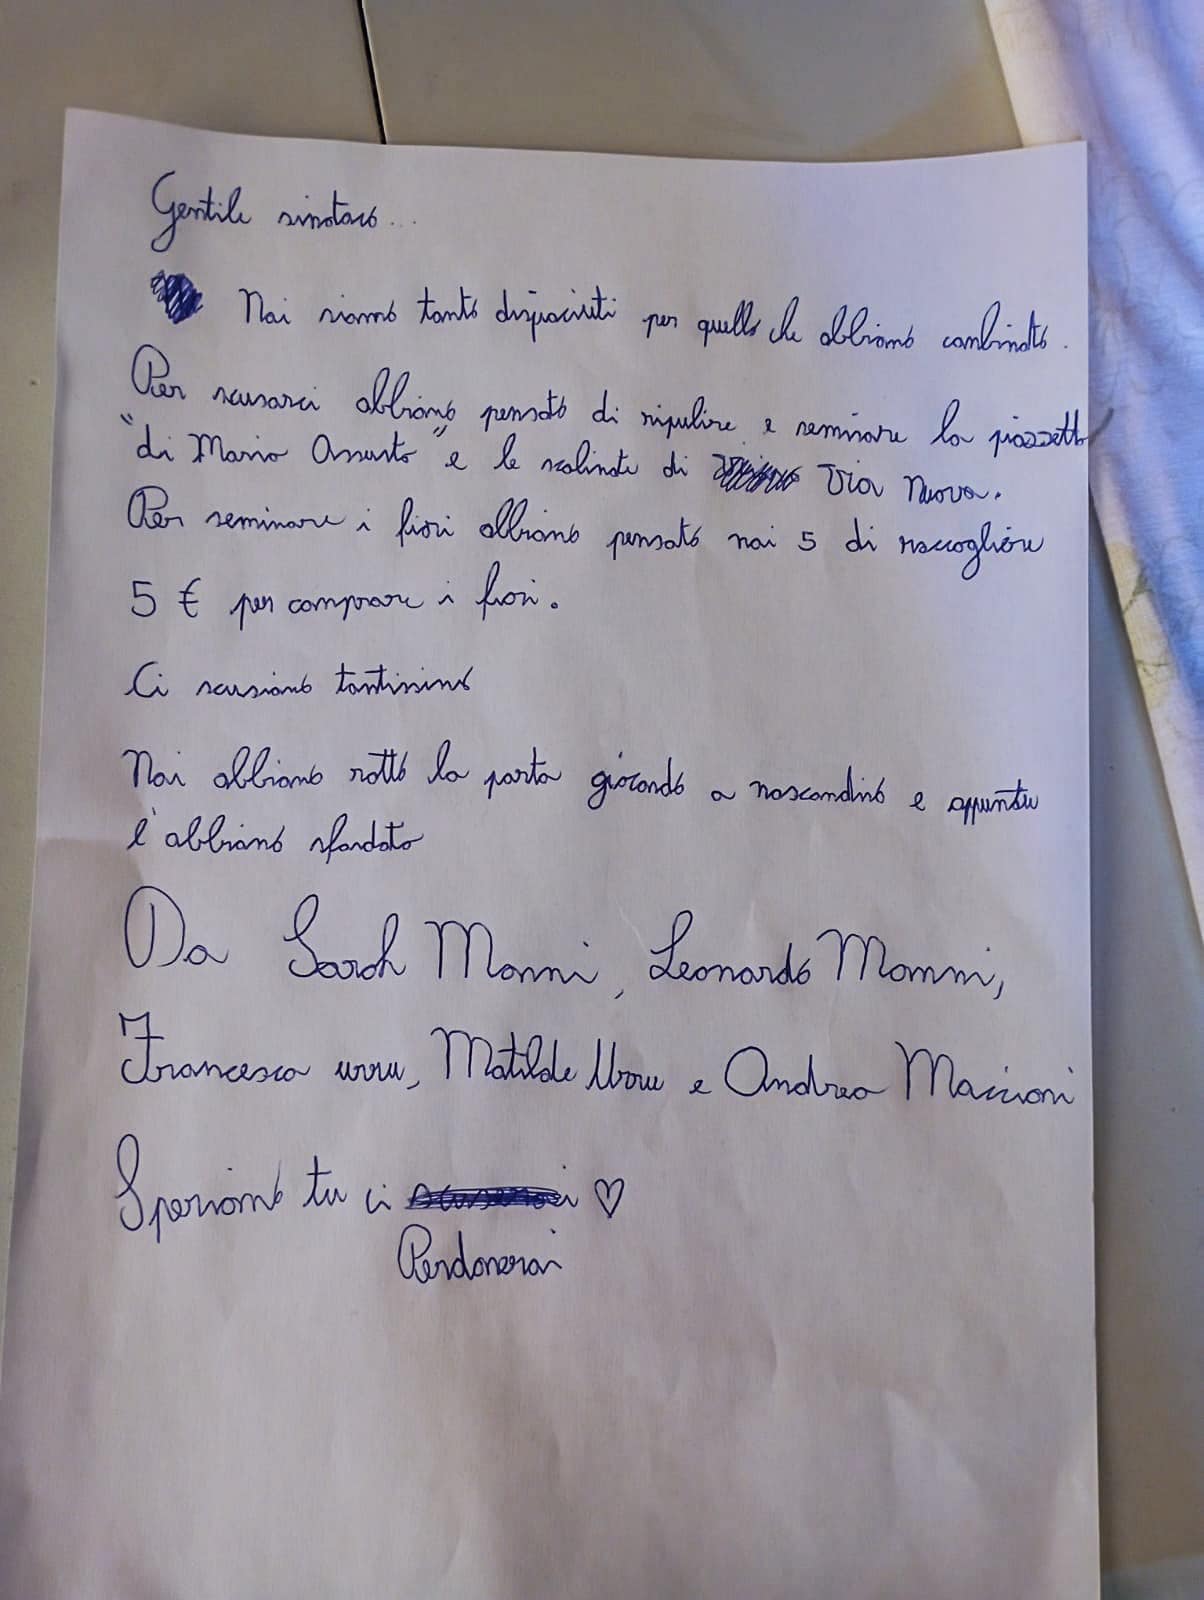 Gentile sindaco...
Noi siamo tanto dispiaciuti per quello che abbiamo combinato.
Per scusarci abbiamo pensato di ripulire e seminare la piazzetta
"di Maria Assunta" e le scalinate di Via Nuova.
Per seminare i fiori abbiamo pensato noi 5 di raccogliere
5 € per comprare i fiori.
Ci scusiamo tantissimo
Noi abbiamo rotto la porta giocando a nascondino e appunto
l'abbiamo sfondata
Da Sarah Manni, Leonardo Manni,
Francesca urru, Matilde Urru e Andrea Maccioni
Speriamo tu ci ♡
Perdonerai